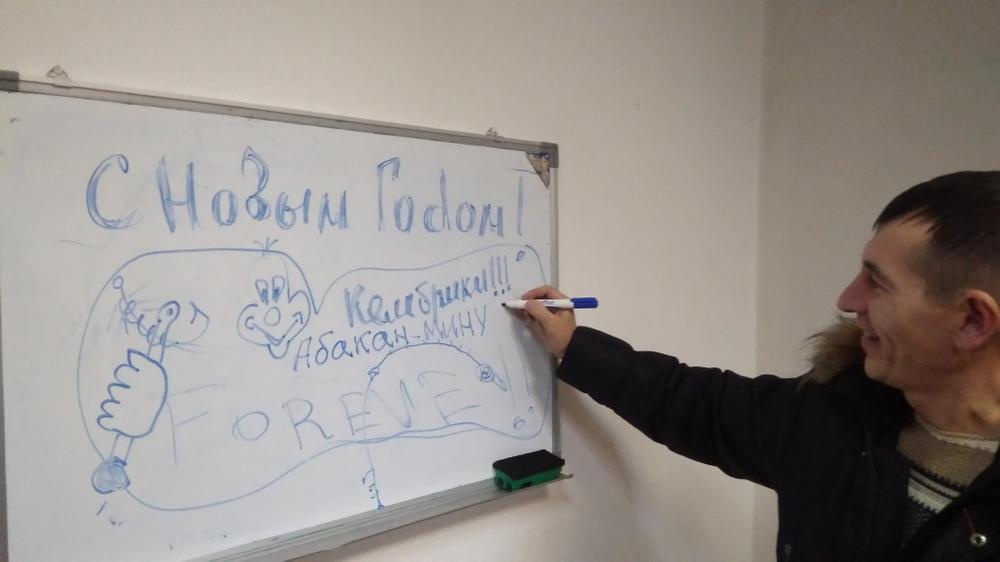 С Новым Годом!
Кембрики!!!
Абакан-мину
FOREVE